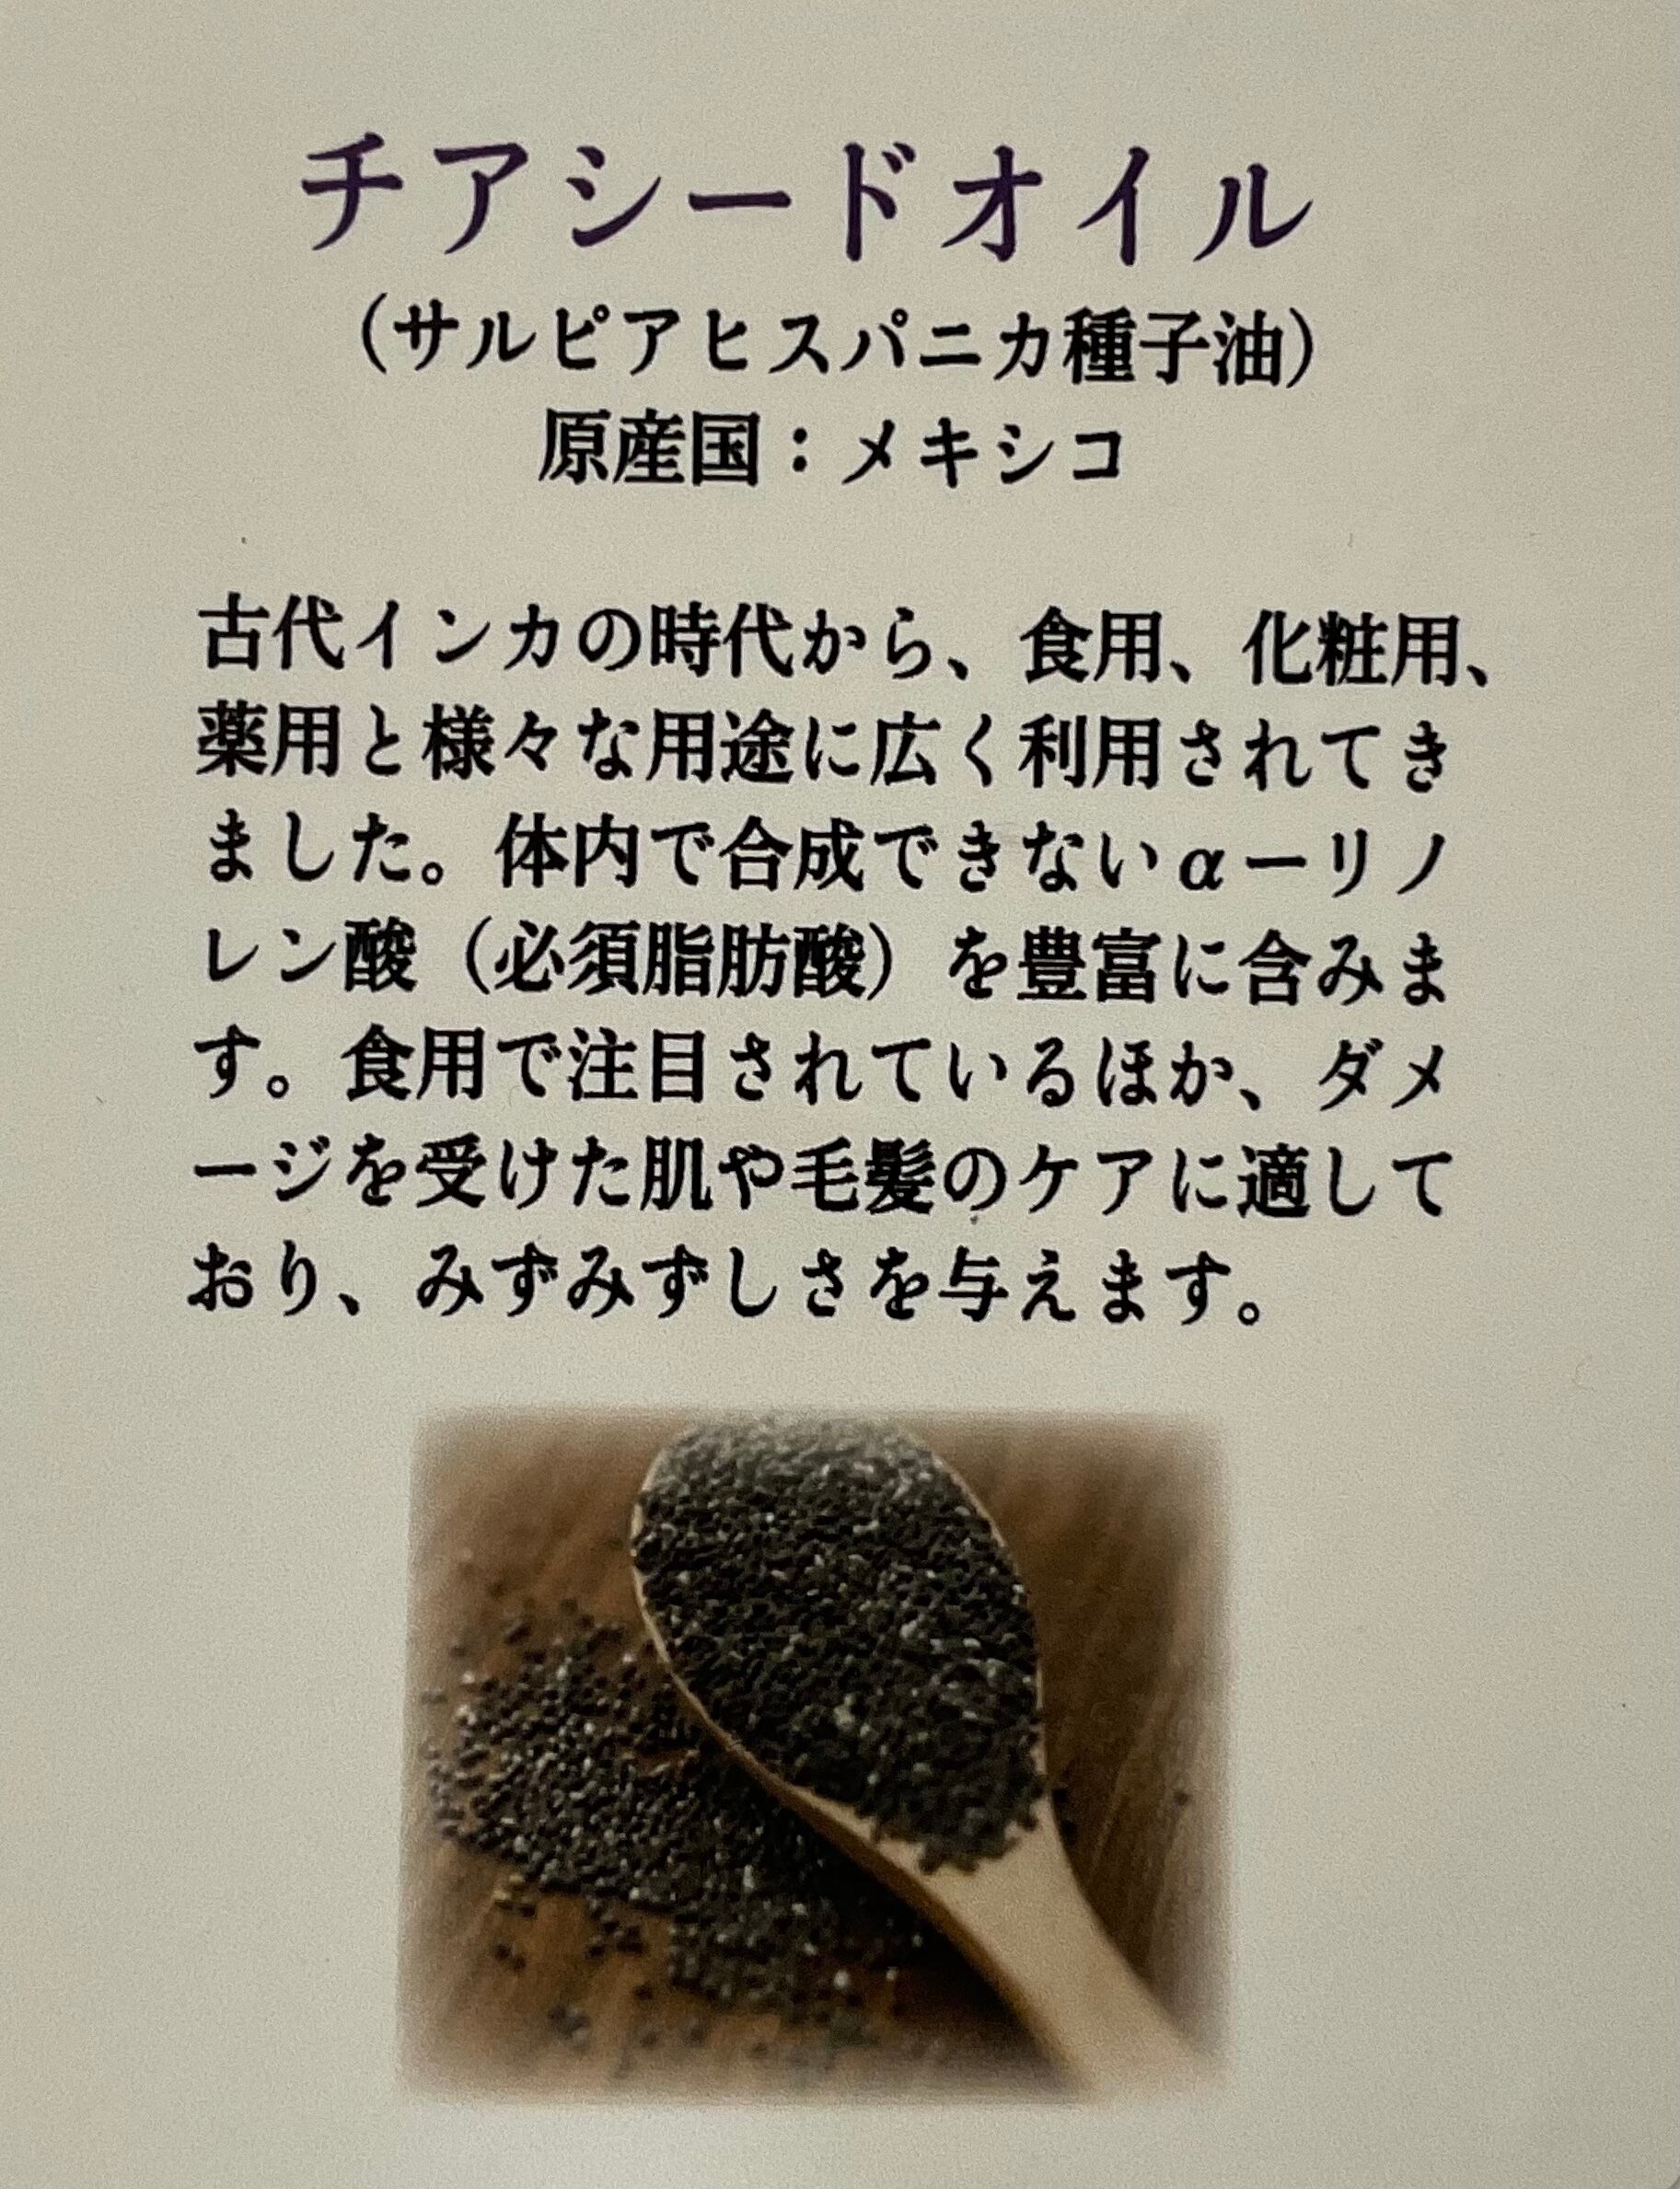 チアシードオイル
（サルピアヒスパニカ種子油）
原産国：メキシコ
古代インカの時代から、食用、化粧用、
薬用と様々な用途に広く利用されてき
ました。体内で合成できないαーリノ
レン酸（必須脂肪酸）を豊富に含みま
す。食用で注目されているほか、ダメ
ージを受けた肌や毛髪のケアに適して
おり、みずみずしさを与えます。